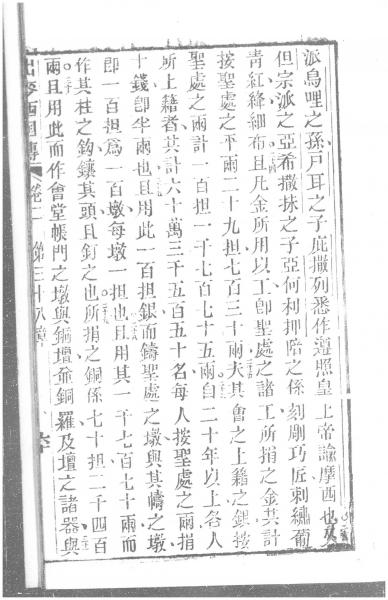 派烏哩之孫戶耳之子庇撒列悉作遵照皇上帝諭摩西也又
但宗派之亞希撒抹之子亞何利押陪之係刻剛巧匠刺繡葡
青紅絳細布且凡金所用以工卽聖處之諸工所捐之金共計
按聖處之平兩二十九担七百三十兩夫其會之上籍之銀按
聖處之兩計一百担一千七百七十五兩自二十年以上各人
所上籍者共計六十萬三千五百五十名每人按聖處之兩捐
十錢卽半兩也且用此一百担銀而鑄聖處之墩與其幬之墩
卽一百担爲一百墩每墩一担也且用其一千七百七十兩而
作其柱之鈎鑲其頭且釘之也所捐之銅係七十担二千四百
兩且用此而作會堂帳門之墩與銅壇並銅羅及壇之諸器與
出麥西國傳 卷二 第三十八章